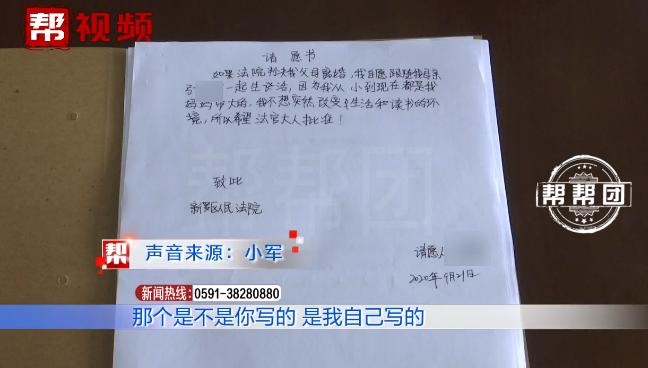 帮视频
请愿书
如果法院判决我父母离婚，我自愿跟随母亲
一起生活，因为我从小到现在都是我
妈妈带大的，我不想突然改变生活和读书的环
境，所以希望法官大人批准！
帮帮团
致此
帮帮团
人民法院
帮 声音来源：小军
请愿人
2020年9月21日
新闻热线：0591-38280880
那个是不是你写的 是我自己写的